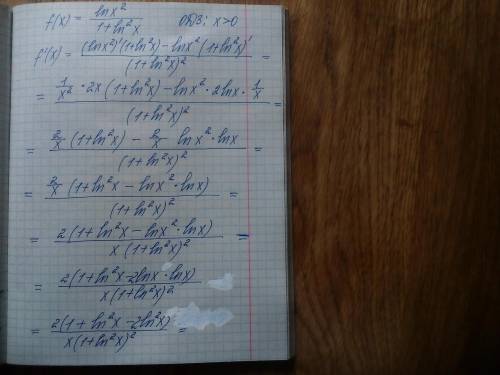 f(x) = lnx²/(1+ln²x) ОДЗ: x>0
f'(x) = ((lnx²)'(1+ln²x) - lnx²(1+ln²x)')/(1+ln²x)² =
= (1/x² · 2x(1+ln²x) - lnx² · 2lnx · 1/x)/(1+ln²x)² =
= (2/x (1+ln²x) - 2/x lnx² · lnx)/(1+ln²x)² =
= (2/x (1+ln²x - lnx² · lnx))/(1+ln²x)² =
= 2(1+ln²x - lnx² · lnx)/(x(1+ln²x)²) =
= 2(1+ln²x - 2lnx · lnx)/(x(1+ln²x)²)
= 2(1+ln²x - 2ln²x)/(x(1+ln²x)²) =